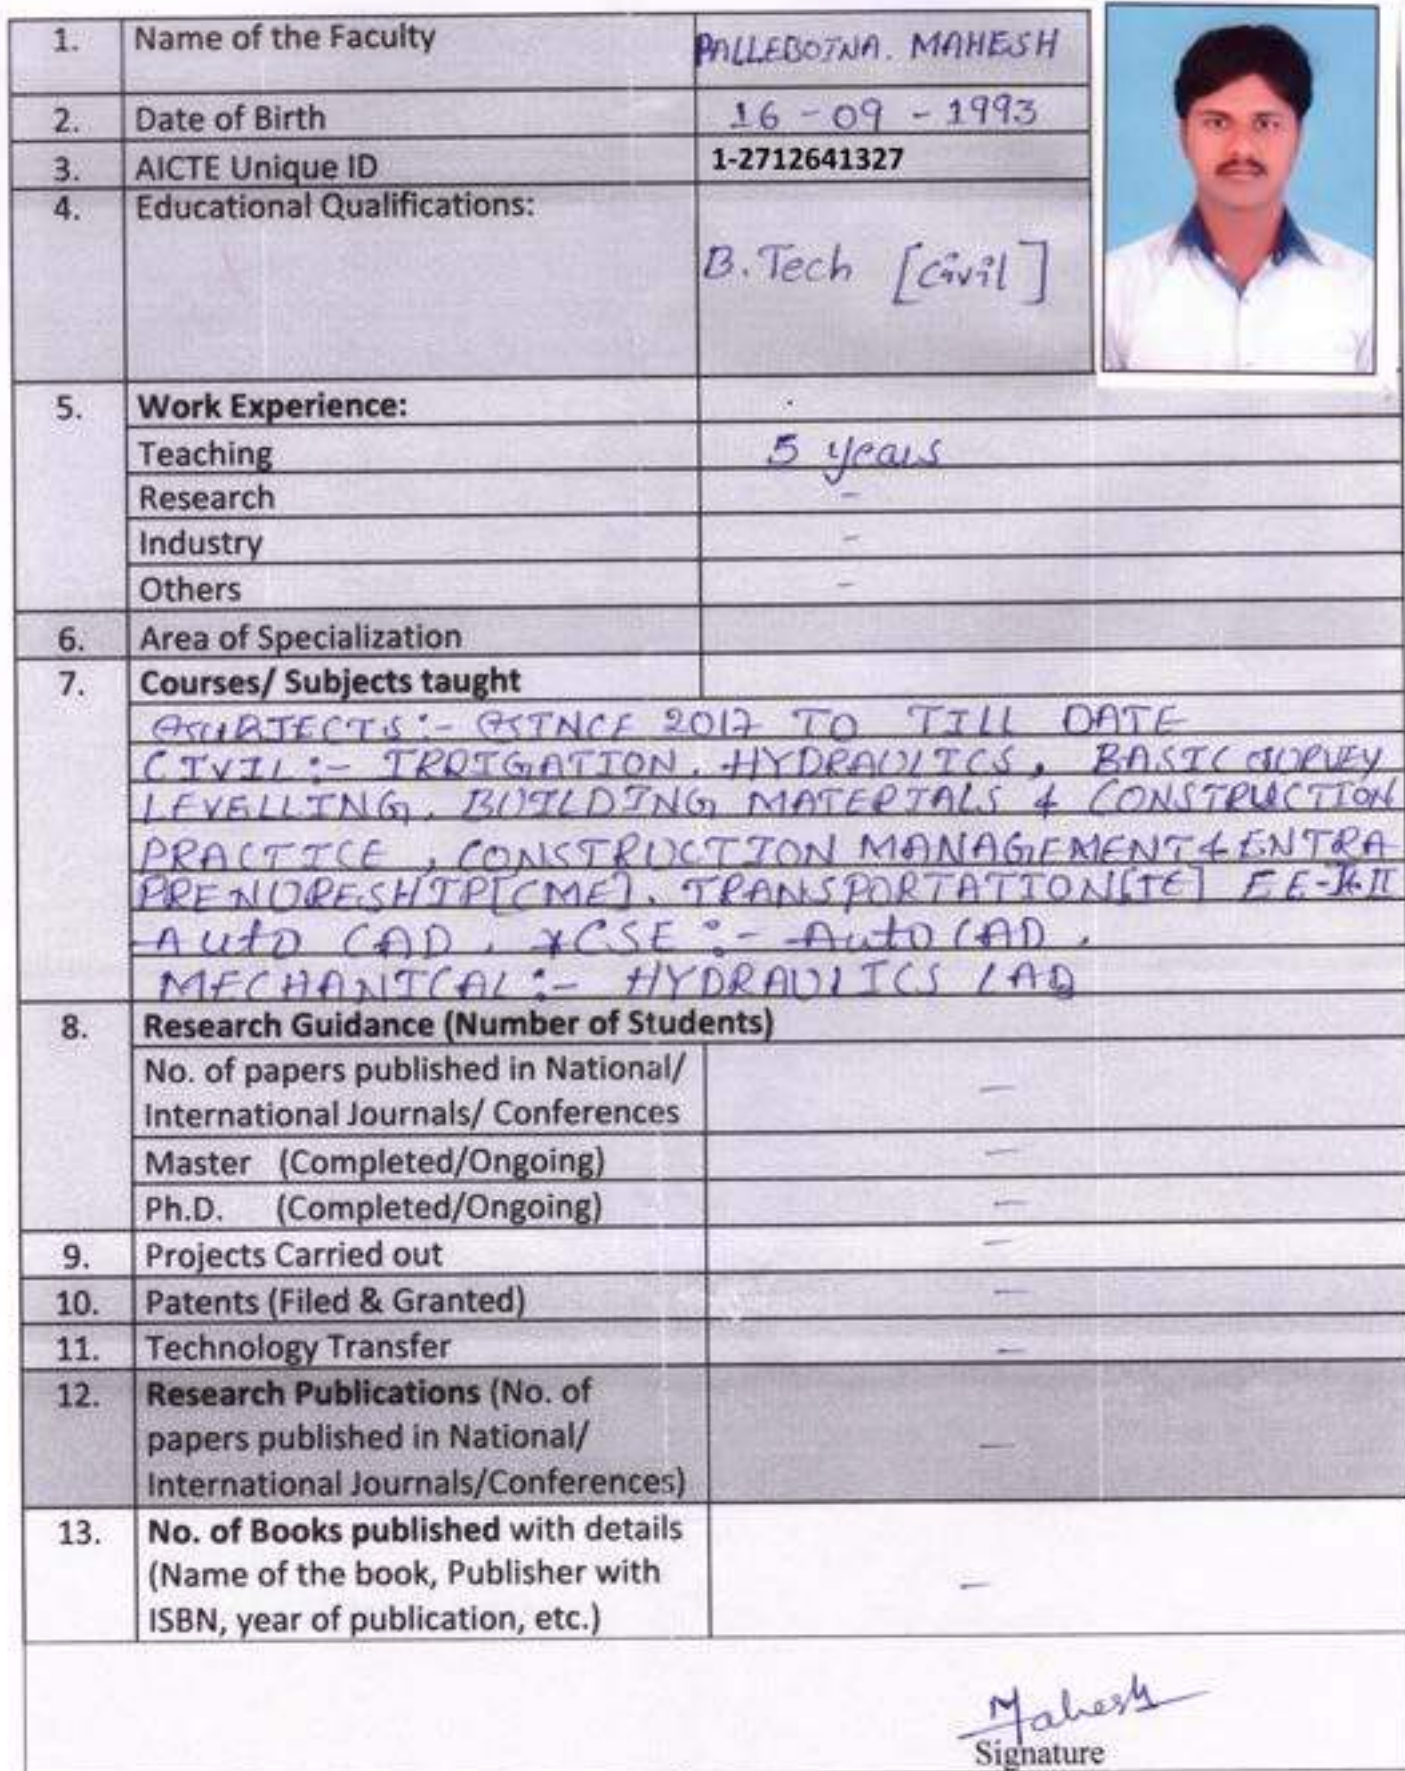 1. Name of the Faculty PALLEBOINA. MAHESH
2. Date of Birth 16 - 09 - 1993
3. AICTE Unique ID 1-2712641327
4. Educational Qualifications:
B.Tech [Civil]
5. Work Experience:
Teaching 5 years
Research -
Industry -
Others -
6. Area of Specialization
7. Courses/ Subjects taught
SUBJECTS:- SINCE 2017 TO TILL DATE
CIVIL:- IRRIGATION, HYDRAULICS, BASIC SURVEY
LEVELLING, BUILDING MATERIALS & CONSTRUCTION
PRACTICE, CONSTRUCTION MANAGEMENT & ENTRA
PRENURESHIP[CME], TRANSPORTATION[TE] EE-
AUTO CAD, *CSE:- AUTO CAD,
MECHANICAL:- HYDRAULICS LAB
8. Research Guidance (Number of Students)
No. of papers published in National/
International Journals/ Conferences -
Master (Completed/Ongoing) -
Ph.D. (Completed/Ongoing) -
9. Projects Carried out -
10. Patents (Filed & Granted) -
11. Technology Transfer -
12. Research Publications (No. of
papers published in National/
International Journals/Conferences) -
13. No. of Books published with details
(Name of the book, Publisher with
ISBN, year of publication, etc.) -
Mahesh
Signature